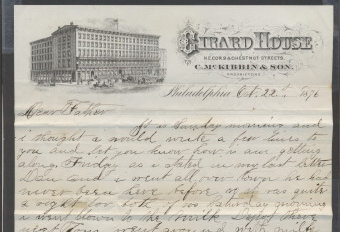 GIRARD HOUSE
N.E. COR. 9 & CHESTNUT STREETS.
C. McKIBBIN & SON,
PROPRIETORS
Philadelphia Oct. 22nd 1876
Dear Father
It is Sunday and
i thought i would write a few lines to
you and let you know how i am getting
along, Friday as i stated in my last letter
Dan and i went all over town he had
never been here before so it was quite
a sight for both of us Saturday morning
i went down to the Milk Depot there
went around with milk